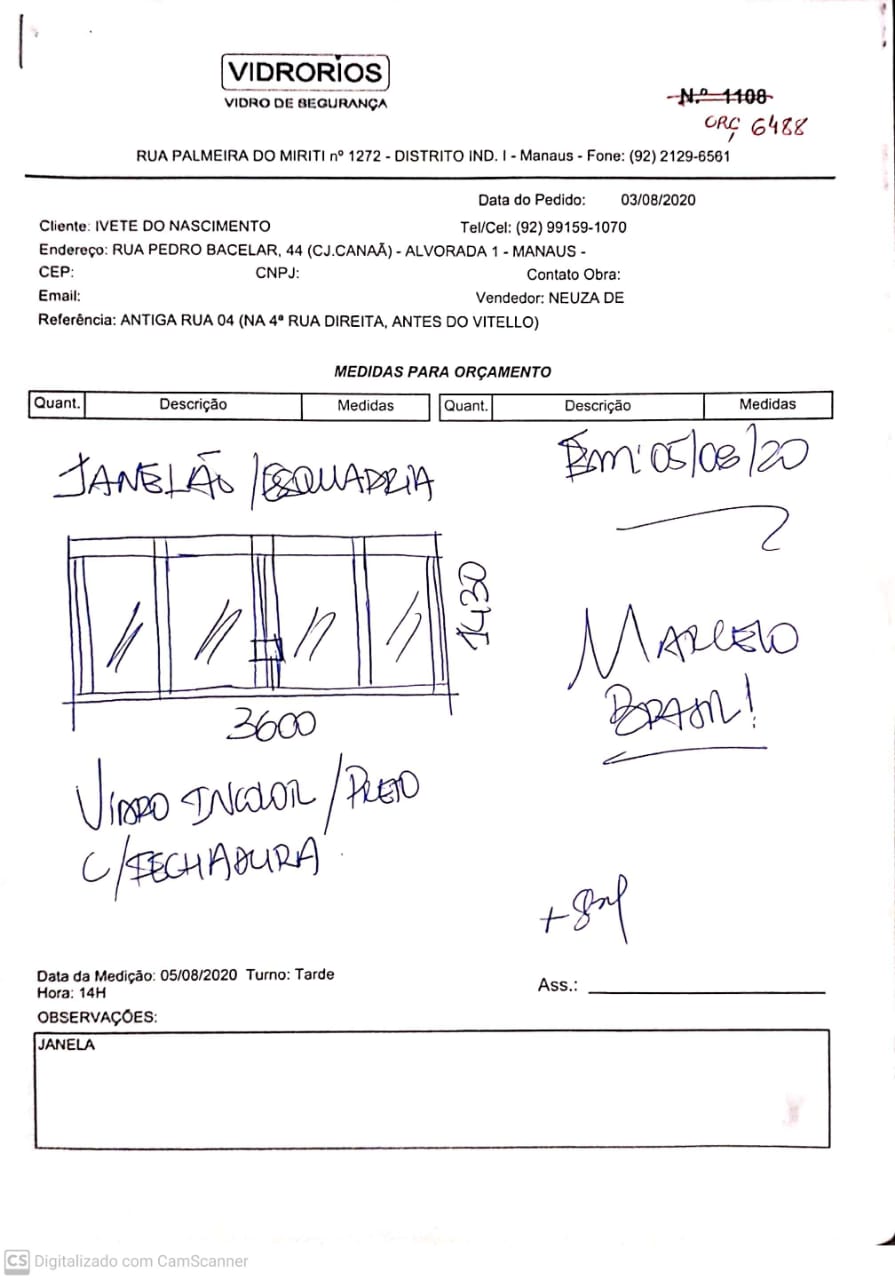 VIDRORIOS
VIDRO DE SEGURANÇA
N.º 1108
ORÇ 6488
RUA PALMEIRA DO MIRITI nº 1272 - DISTRITO IND. I - Manaus - Fone: (92) 2129-6561
Data do Pedido: 03/08/2020
Cliente: IVETE DO NASCIMENTO Tel/Cel: (92) 99159-1070
Endereço: RUA PEDRO BACELAR, 44 (CJ.CANAÃ) - ALVORADA 1 - MANAUS -
CEP: CNPJ: Contato Obra:
Email: Vendedor: NEUZA DE
Referência: ANTIGA RUA 04 (NA 4ª RUA DIREITA, ANTES DO VITELLO)
MEDIDAS PARA ORÇAMENTO
Quant. Descrição Medidas Quant. Descrição Medidas
JANELÃO/ESQUADRIA
Em: 05/08/20
1430
3600
MARCELO
BRASIL!
VIDRO INCOLOR/PRETO
C/FECHADURA
Data da Medição: 05/08/2020 Turno: Tarde
Hora: 14H
Ass.:
OBSERVAÇÕES:
JANELA
CS Digitalizado com CamScanner